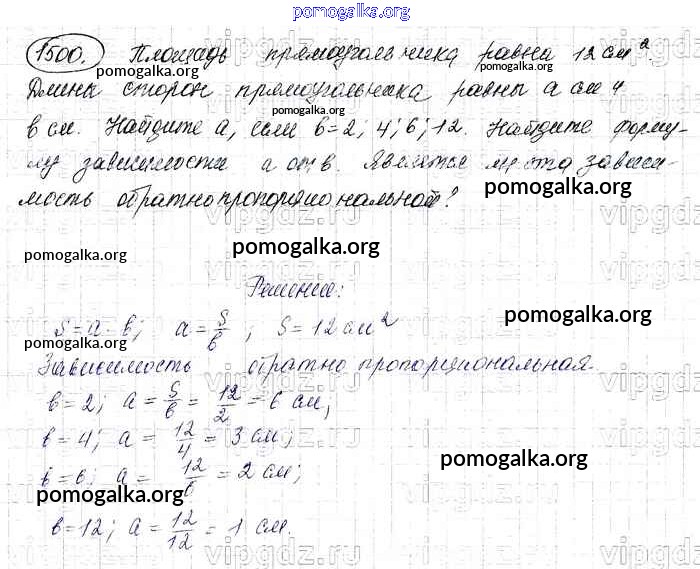 pomogalka.org
1500. Площадь прямоугольника равна 12 см².
pomogalka.org pomogalka.org
Длины сторон прямоугольника равны a см и
pomogalka.org
b см. Найдите a, если b=2; 4; 6; 12. Найдите форму-
лу зависимости a от b. Является ли эта зависи-
pomogalka.org
мость обратно пропорциональной?
pomogalka.org pomogalka.org
Решение:
S=a·b; a=S/b; S=12 см²
pomogalka.org
Зависимость обратно пропорциональная.
b=2; a=S/b=12/2=6 см;
b=4; a=12/4=3 см;
pomogalka.org
b=6; a=12/6=2 см;
pomogalka.org
b=12; a=12/12=1 см.
vipgdz.ru